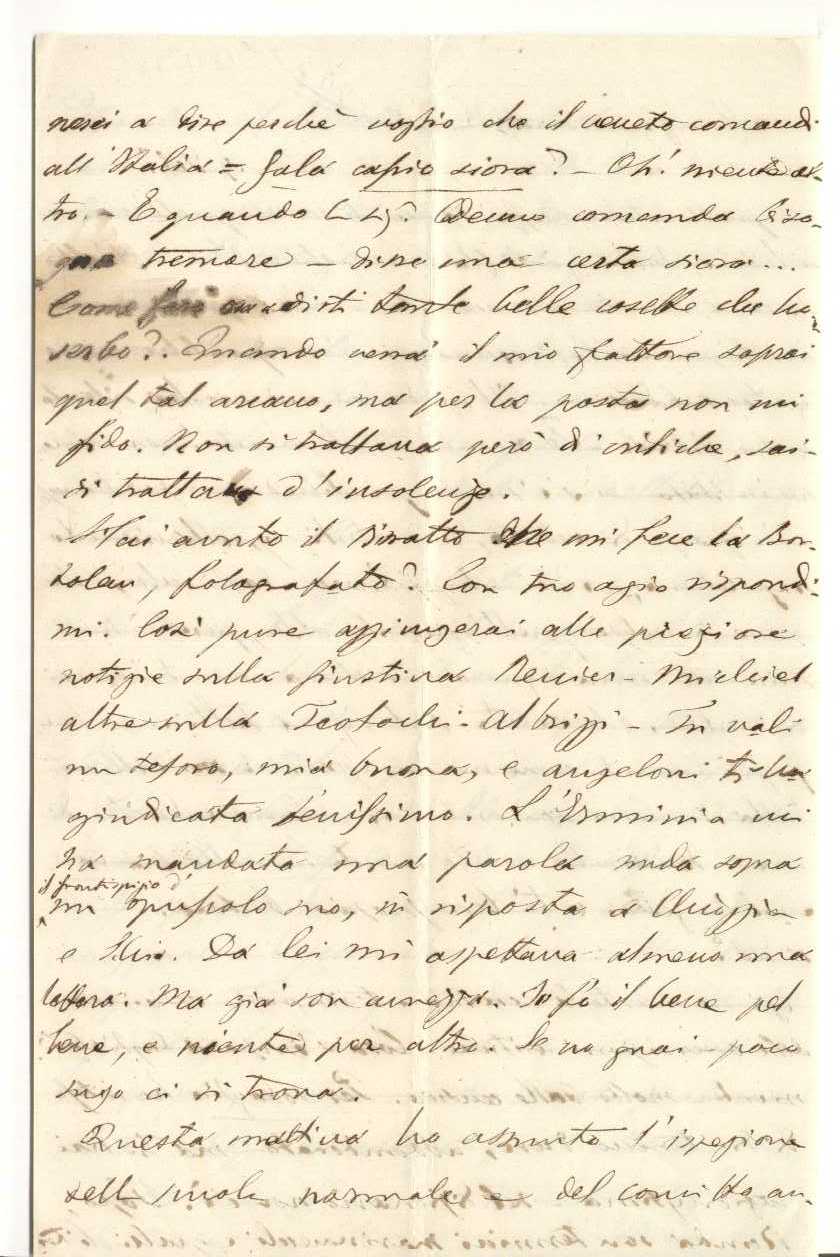 nessi a dire perchè voglio che il veneto comandi
all'Italia = Gala capio siora? - Oh! niente al-
tro. - E quando comanda biso-
gna tremare - disse una certa siora...
Come farò a dirti tante belle cosette che ho in
serbo?. Quando verrà il mio fattore saprai
quel tal arcano, ma per la posta non mi
fido. Non si trattava però di critiche, sai-
si trattava d'insolenze.
Hai avuto il ritratto che mi fece la Bor-
tolan, fotografato? Con tuo agio rispondi-
mi. Così pure aggiungerai alle preziose
notizie sulla Giustina Renier-Michiel
altre sulla Teotochi-Albrizzi - Tu vali
un tesoro, mia buona, e angeloni ti ha
giudicata benissimo. L'Erminia mi
ha mandata una parola nuda sopra
il frontispizio d'
un opuscolo suo, in risposta a Chioggia
e Da lei mi aspettava almeno una
lettera. Ma già son avvezza. Io fo il bene pel
bene, e niente per altro. Se no guai - poco
sugo ci si trova.
Questa mattina ho assunto l'ispezione
della scuola normale e del convitto an-